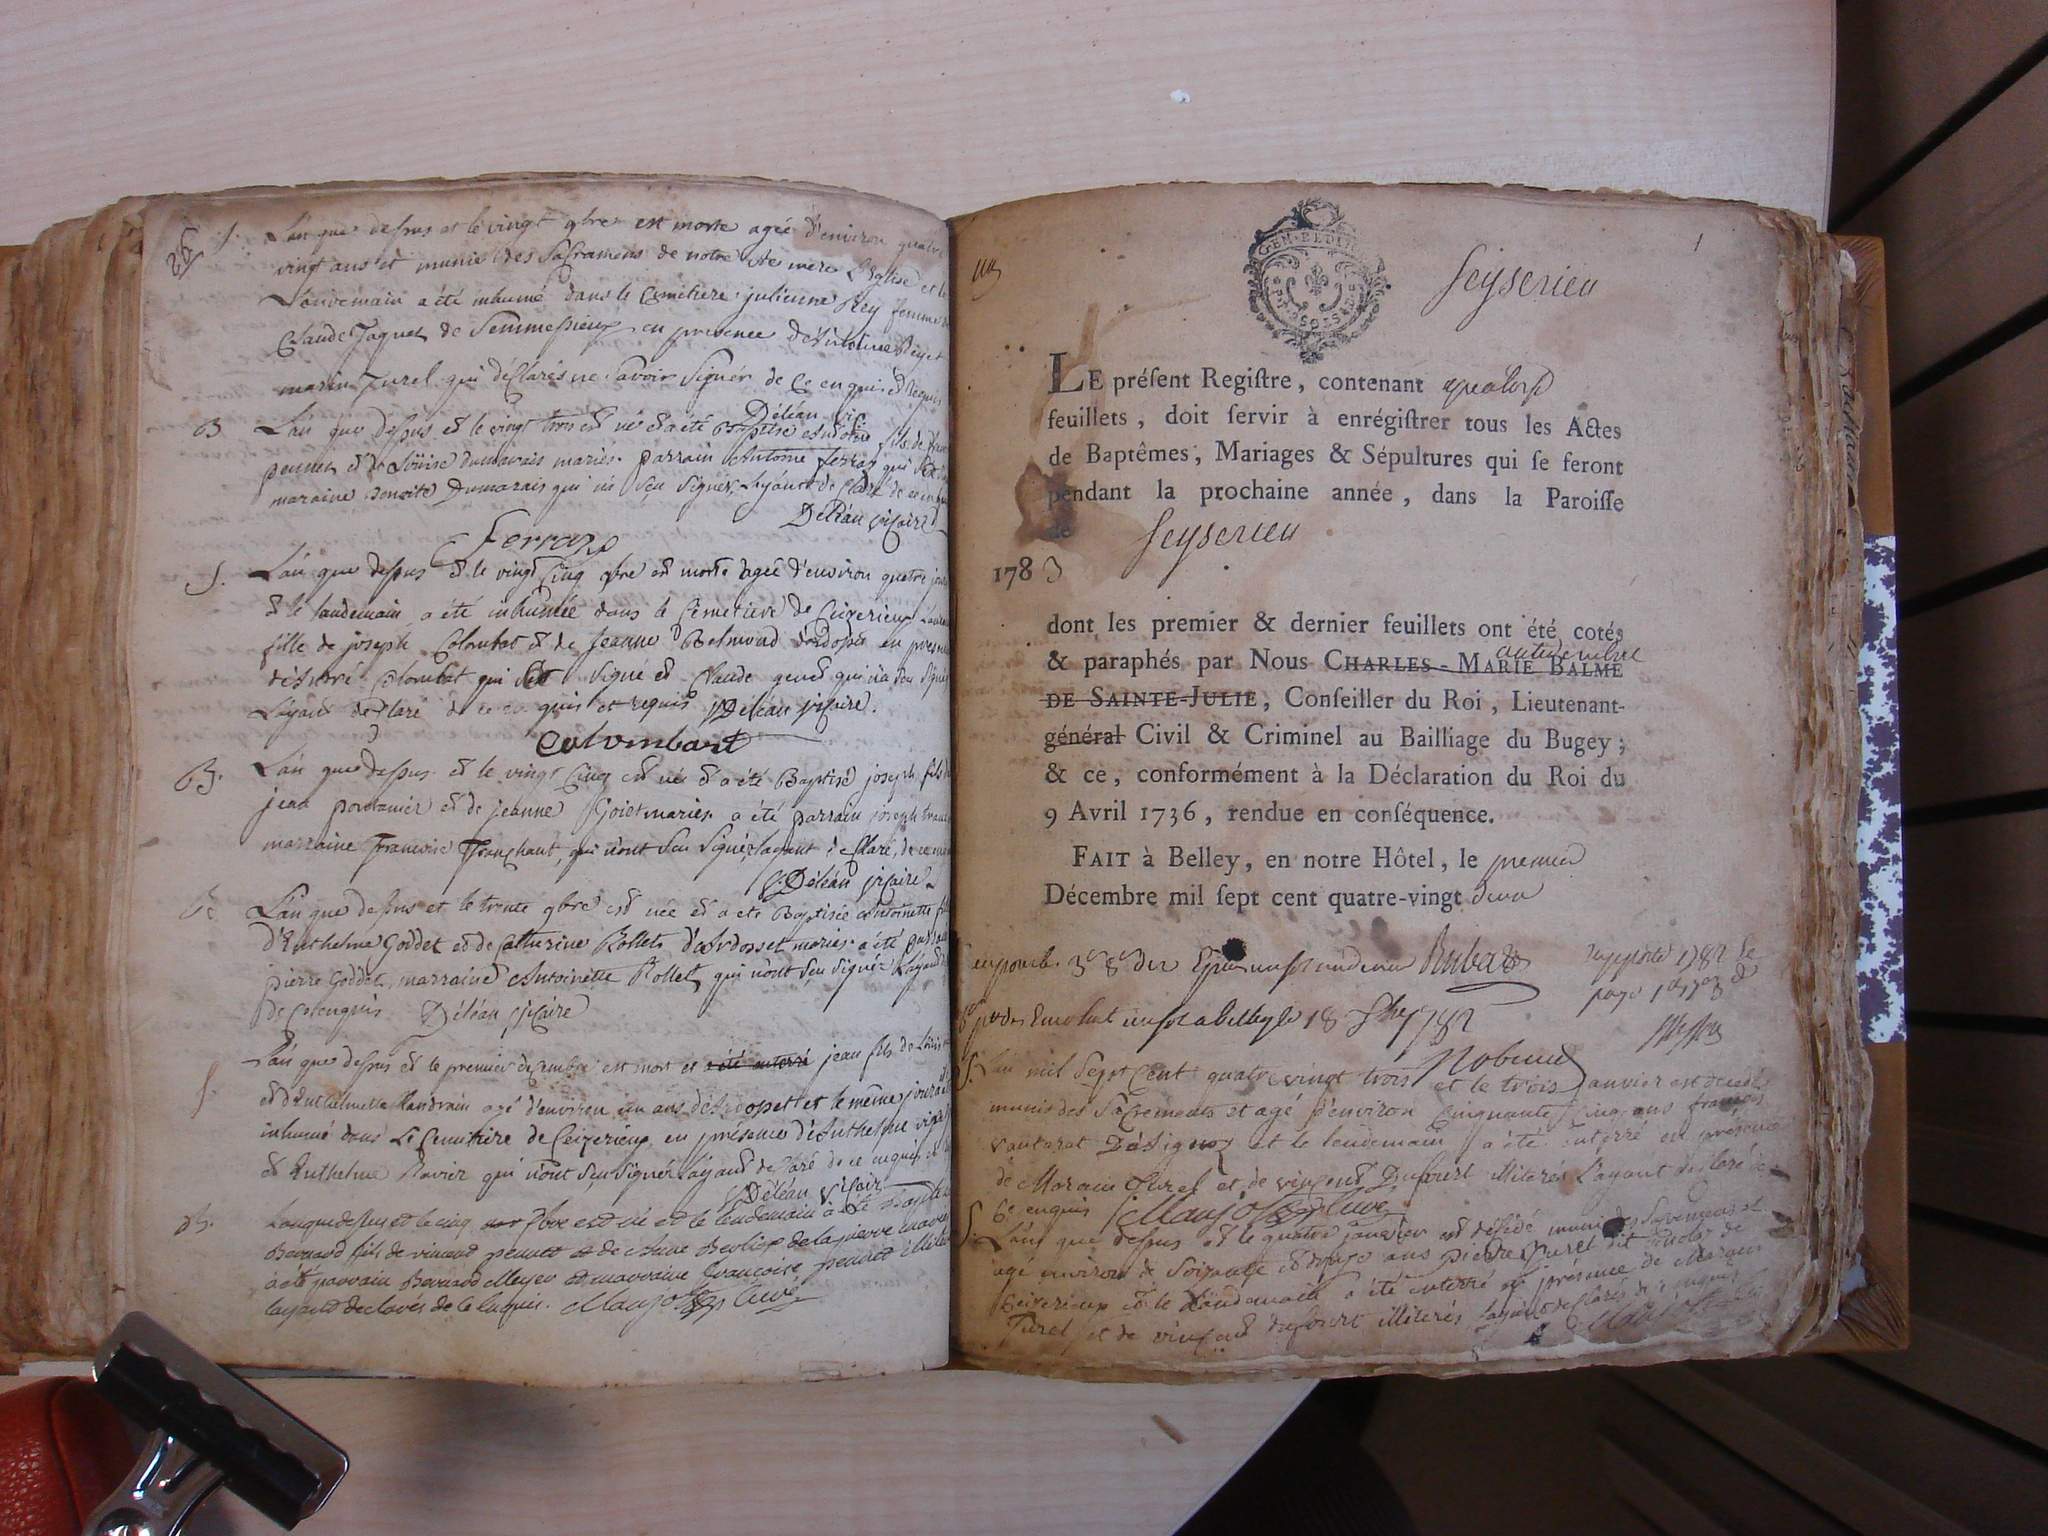 26
S. L'an que dessus et le vingt 9bre est morte agée d'environ quatre
vingt ans et munie des Sacramens de notre Ste mere L'Eglise et le
Landemain a été inhumé dans le Cemitiere julienne Rey femme de
Claude Jaquet de en presence d'Antoine Rey et
marin Turel qui déclarés ne Savoir Signér de Ce enquis et requis
Déléan vic
B L'an que dessus et le vingt trois est né et a été Baptisé Antoine fils de
pennet et de Loüise dumarais mariés. parrain Antoine ferraz qui
maraine Benoite Dumarais qui n'a Seu Signer Layant de Claré de ce enquis
Déléan vicaire
Ferraz
S. L'an que dessus et le vingt Cinq 9bre est morte agée d'environ quatre jours
et le landemain a été inhumée dans le Cemetiere de Ceizerieux
fille de joseph Colombat et de Jeanne Belmond d'ardosset en presence
d'André Colombat qui s'est signé et Claude genet qui n'a seu signer
Layant de Claré de ce enquis et requis Déléan vicaire.
Colombart
B. L'an que dessus et le vingt Cinq est né et a été Baptisé joseph fils de
jean pontanier et de jeanne Goiet mariés a été parrain joseph
marraine francoise Tranchant, qui n'ont Seu Signér layant declaré, de ce
Déléan vicaire
B L'an que dessus et le trente 9bre est née et a été Baptisée Antoinette
d'Anthelme Goddet et de Catherine Rollet d'Ardosset mariés a été parrain
pierre Goddet, marraine Antoinette Rollet, qui n'ont seu signér Layant
de Ce enquis Déléan vicaire
S. L'an que dessus et le premier decembre est mort et a été enterré jean fils de Loüis
et d'Anthelmette Mandrain agé d'environ un ans d'Ardosset et le même jour a été
inhumé dans Le Cemitiere de Ceizerieux, en présence d'Anthelme
et Anthelme Ravier qui n'ont seu signér Layant declaré de ce enquis
Déléan vicair
B. Lanquedessus et le cinq Xbre est né et le lendemain a été Baptisé
Bernard fils de vincend pennet et de Anne Berlioz de lapierre mariés
a été parrain Bernard Meyer et marraine francoise pennet
layand declarés de ce enquis. Maujot curé
un
GEN. BEDIN
Seyserieu
1
LE préſent Regiſtre, contenant quatorze
feuillets, doit ſervir à enrégiſtrer tous les Actes
de Baptêmes, Mariages & Sépultures qui ſe feront
pendant la prochaine année, dans la Paroiſſe
de Seyserieu
1783
dont les premier & dernier feuillets ont été cotés
& paraphés par Nous CHARLES-MARIE BALME
DE SAINTE-JULIE, Conſeiller du Roi, Lieutenant-
général Civil & Criminel au Bailliage du Bugey;
& ce, conformément à la Déclaration du Roi du
9 Avril 1736, rendue en conſéquence.
FAIT à Belley, en notre Hôtel, le premier
Décembre mil ſept cent quatre-vingt deux
Rubat
1782
S. L'an mil Sept Cent quatre vingt trois et le trois Janvier est decedé
munis des Sacrements et agé d'environ Cinquante Cinq ans françois
vautaret et le lendemain a été Enterré en présence
de Marain Turel et de vincent Dufourt illiterés Layant declaré de
Ce enquis Maujot curé
S. L'an que dessus et le quatre janvier est décédé muni des Sacremens et
agé environ de Soixante et douze ans pierre Turel dit de
Ceizerieux et le Landemain a été enterré en présence de Marain
Turel et de vincent dufourt illiterés Layant declarés de ce enquis